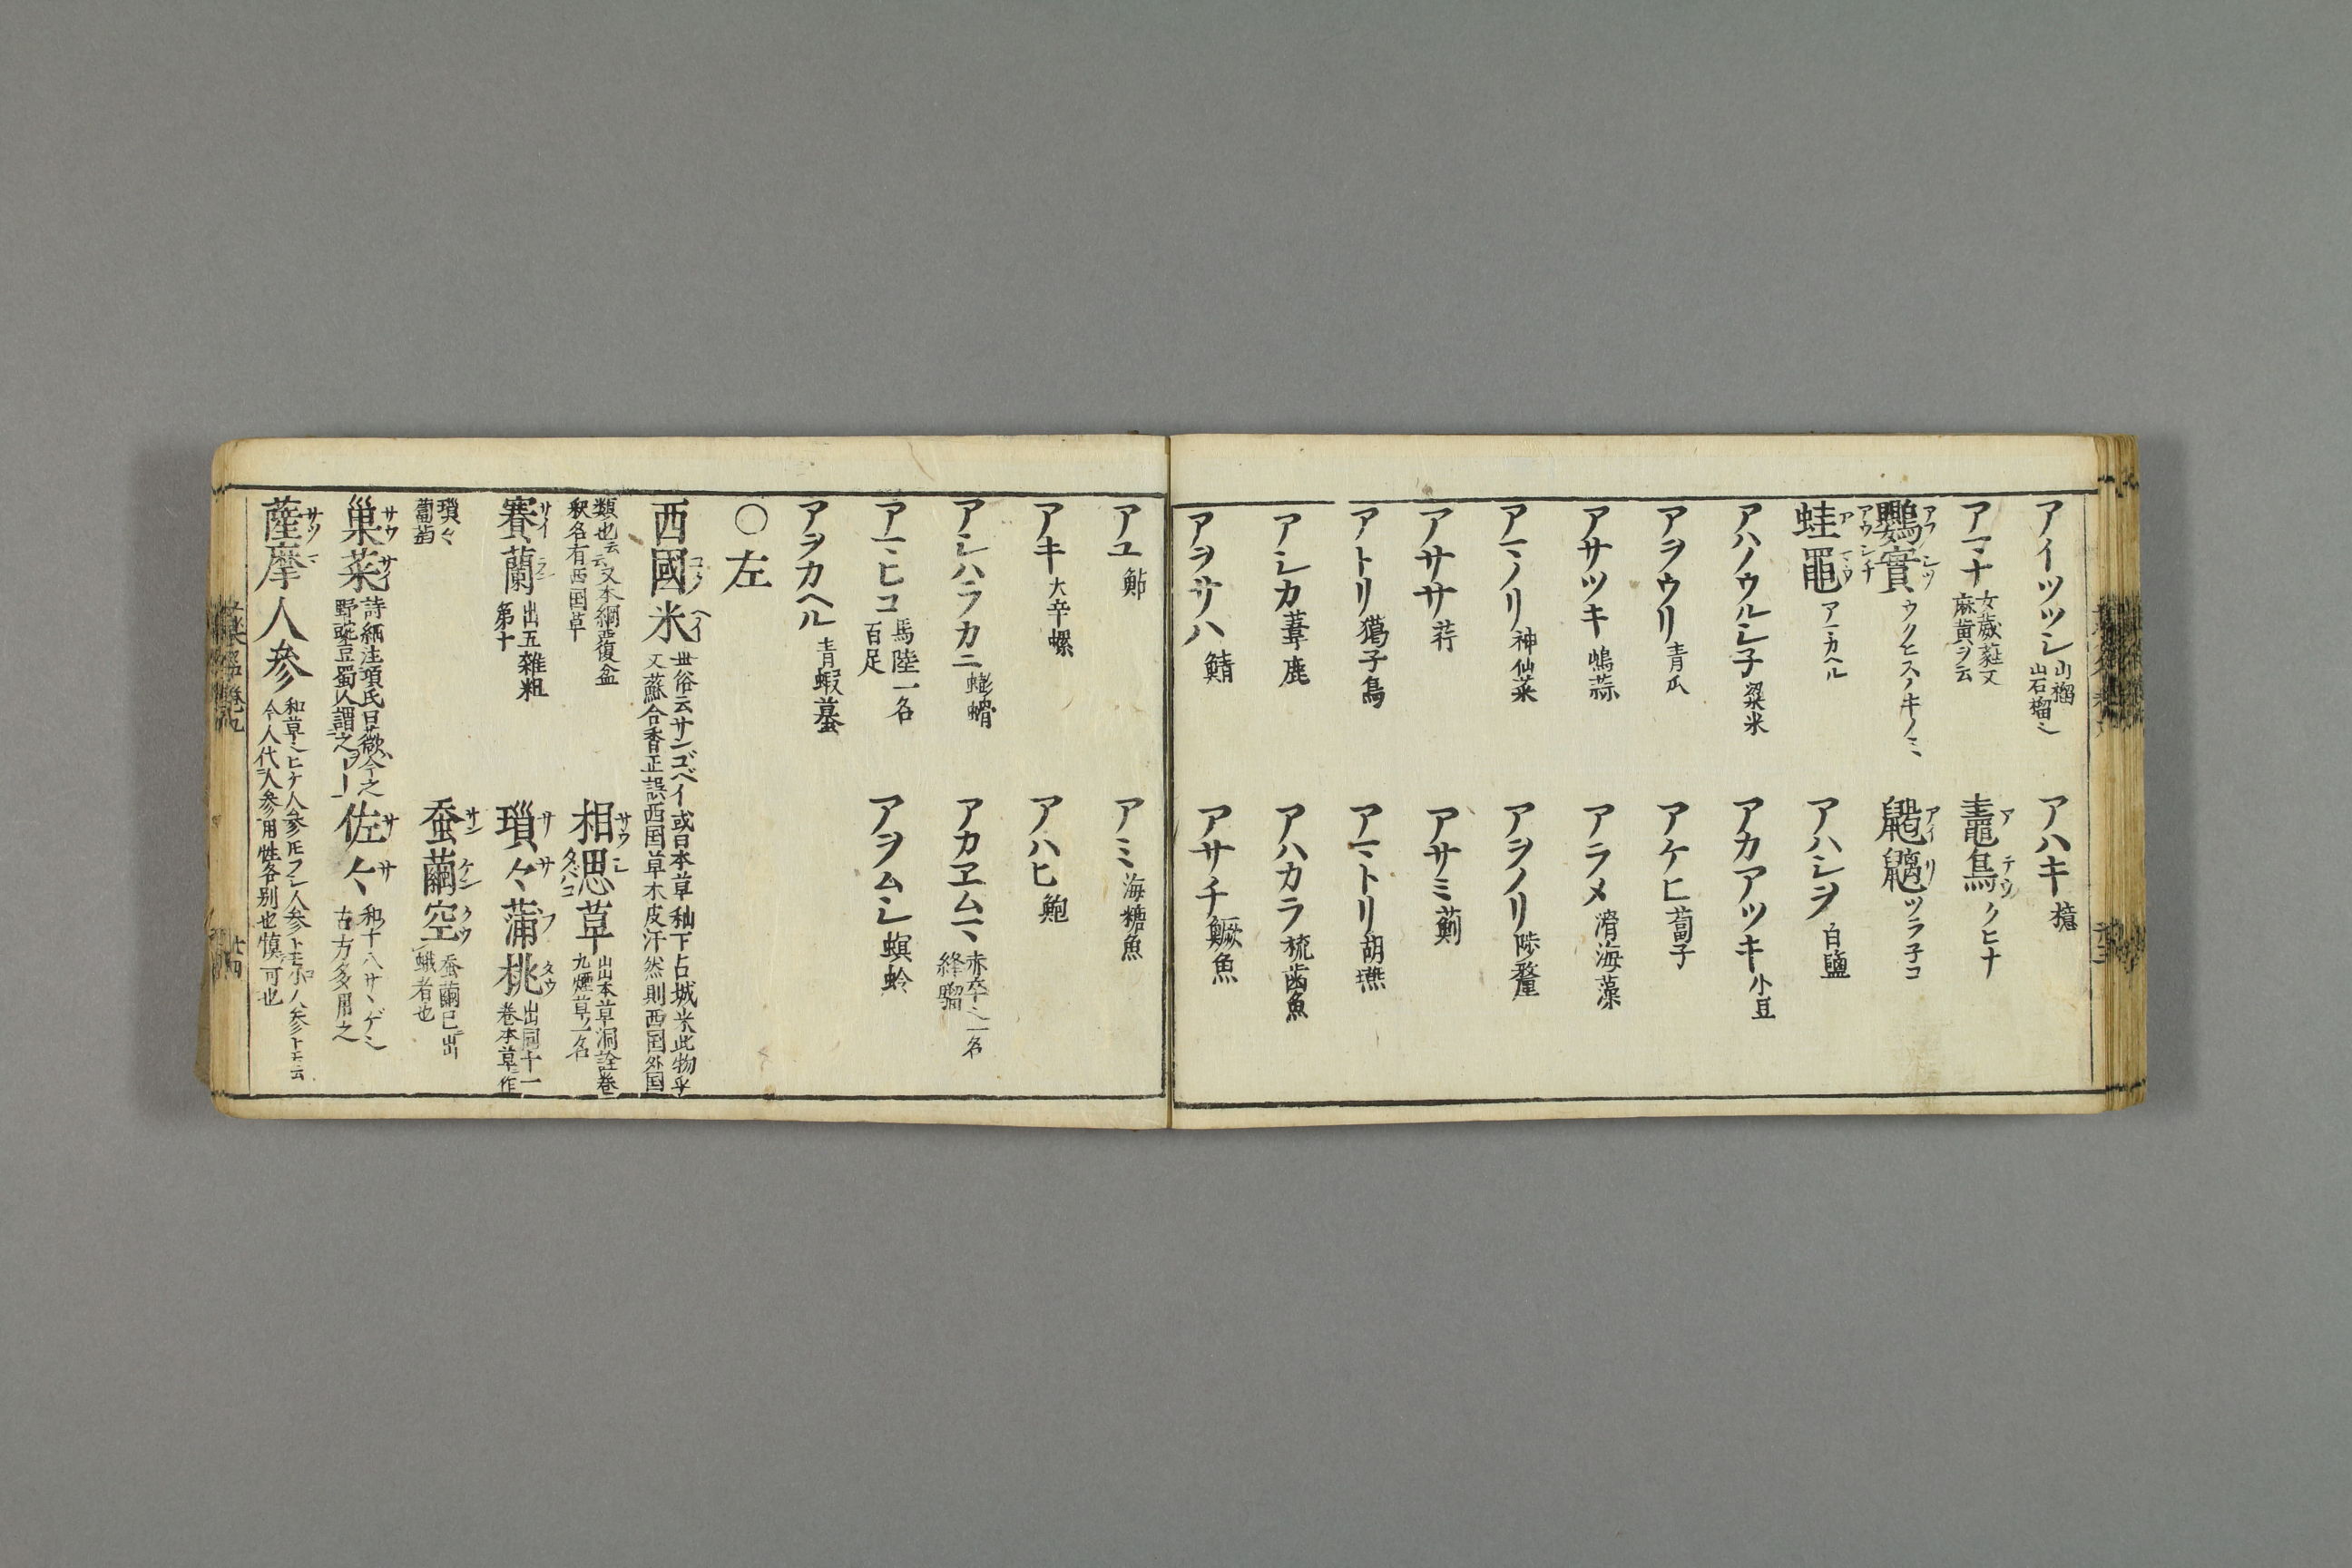 アイツツシ 山榴 山石榴ミ
アハキ 檍
アマナ 女葳蕤又 麻黄ヲ云
鼃鳥 アテウ クヒナ
鸚實 アフシツ アウシチ ウクヒスノキノミ
アイリ ツラ子コ
蛙黽 アマウ アマカヘル
アハシヲ 白鹽
アハノウルシ子 粱米
アカアツキ 小豆
アヲウリ 青瓜
アケヒ 葍子
アサツキ 嶋蒜
アラメ 滑海藻
アマノリ 神仙菜
アヲノリ 陟釐
アササ 荇
アサミ 薊
アトリ 獦子鳥
アマトリ 胡燕
アシカ 葦鹿
アハカラ 梳齒魚
アヲサハ 鯖
アサチ 鱖魚
アユ 鮎
アミ 海糖魚
アキ 大辛螺
アハヒ 鮑
アシハラカニ 蟛螖
アカヱムマ 赤卒ミ一名 絳騮
アマヒコ 馬陸一名 百足
アヲムシ 螟蛉
アヲカヘル 青蝦蟇
〇左
西國米 コクヘイ 世俗云サンゴベイ或曰本草秈下占城米此物乎
又蘇合香正誤西国草木皮汗然則西国外国
類也云云又本綱覆盆
釈名有西国草
相思草 サウシ タバコ 出本草洞詮巻
九煙草ノ一名
賽蘭 サイラン 出五雜粗
第十
瑣々蒲桃 ササフタウ 出同十一
巻本草作
瑣々
葡萄
蚕繭空 サンケンクウ 蚕繭已出
蛾者也
巣菜 サウサイ 詩緝注項氏曰薇今之
野豌豆蜀人謂之
佐々 ササ 和十八サヽゲシ
古方多用之
薩摩人参 サツマ 和草ミヒケ人参モフシ人参ト モ小人参トモ云
今人代人参用性各別也慎可也
廿四